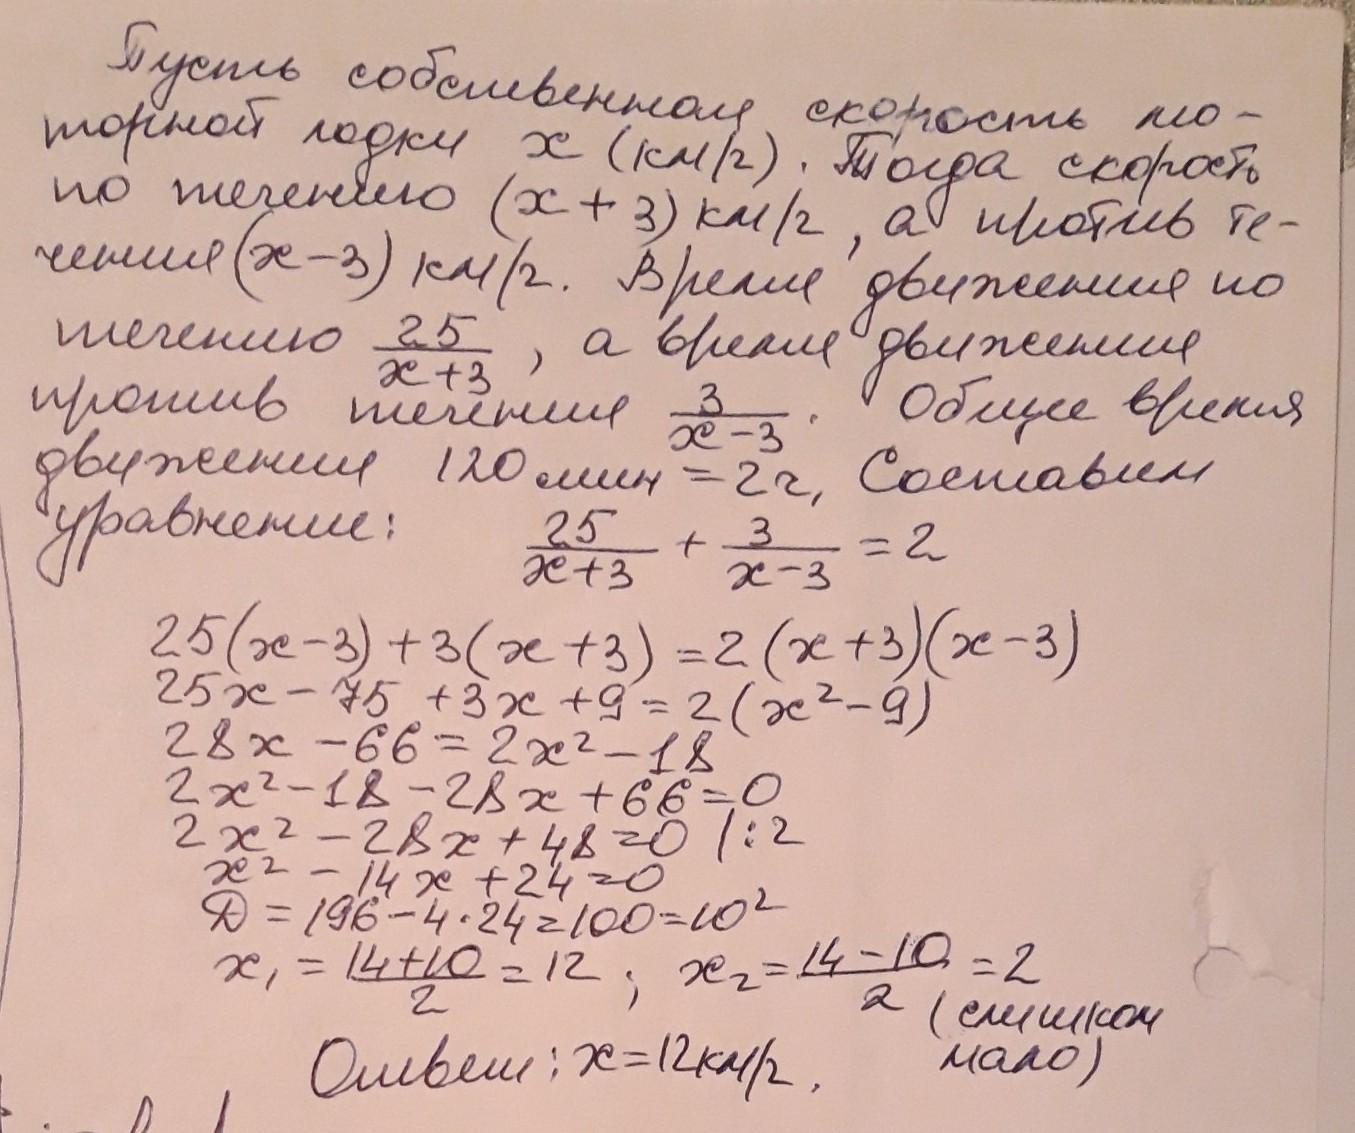 Пусть собственная скорость мо-
торной лодки x (км/ч). Тогда скорость
по течению (x+3) км/ч, а против те-
чения (x-3) км/ч. Время движения по
течению 25/(x+3), а время движения
против течения 3/(x-3). Общее время
движения 120 мин = 2ч, Составим
уравнение: 25/(x+3) + 3/(x-3) = 2
25(x-3)+3(x+3)=2(x+3)(x-3)
25x-75+3x+9=2(x²-9)
28x-66=2x²-18
2x²-18-28x+66=0
2x²-28x+48=0 |:2
x²-14x+24=0
D=196-4·24=100=10²
x₁=(14+10)/2=12; x₂=(14-10)/2=2
(слишком
мало)
Ответ: x=12км/ч.